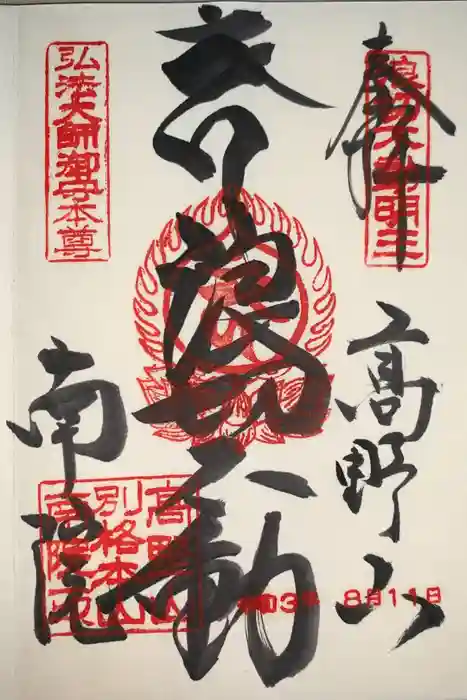 奉拝
高野山
浪切不動
南院
弘法大師御守本尊
高野山
別格本山
南院印
令和3年 8月11日